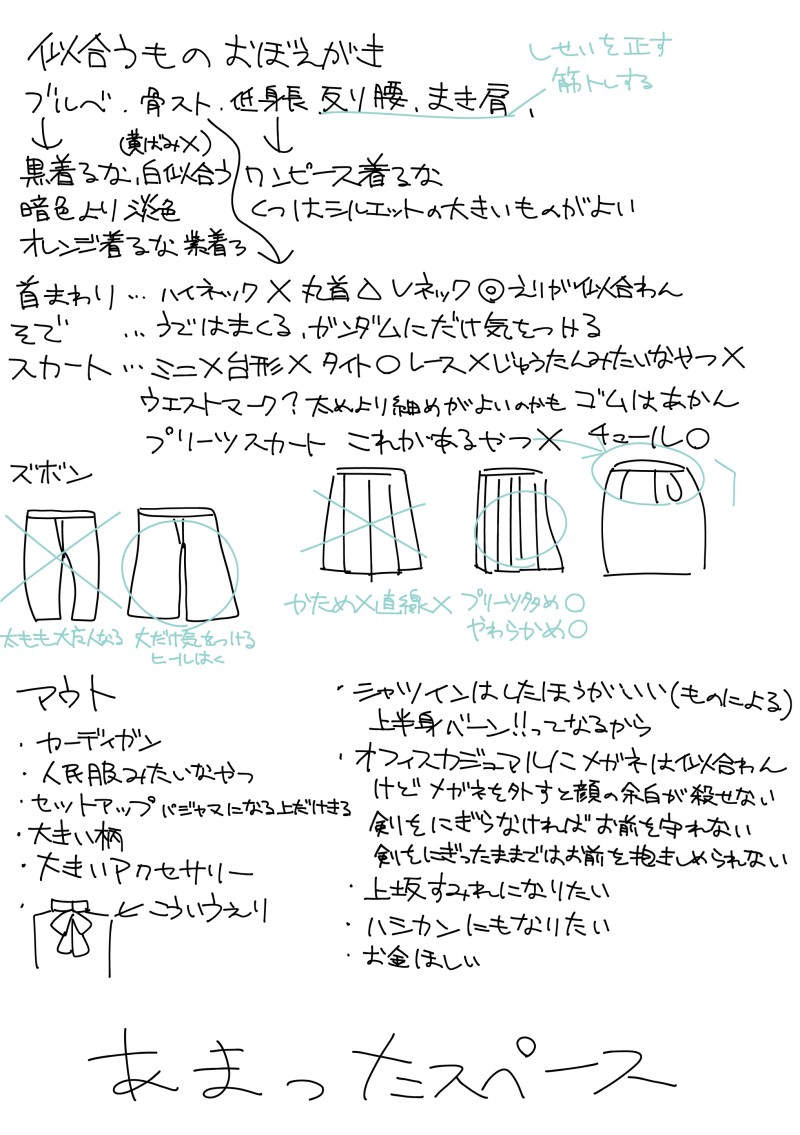 似合うもの おぼえがき
しせいを正す
筋トレする
ブルベ.骨スト.低身長.反り腰.まき肩.
(黄ばみ×)
黒着るな,白似合う
暗色より淡色
オレンジ着るな 紫着ろ
ワンピース着るな
くつはシルエットの大きいものがよい
首まわり…ハイネック×丸首△Vネック◎えりが似合わん
そで …うではまくる,ガンダムにだけ気をつける
スカート…ミニ×台形×タイト○レース×じゅうたんみたいなやつ×
ウエストマーク?太めより細めがよいのかも ゴムはあかん
プリーツスカート これがあるやつ× チュール○
ズボン
太もも大なんなる
丈だけ気をつける
ヒールはく
かため×直線×
プリーツ多め○
やわらかめ○
アウト
・カーディガン
・人民服みたいなやつ
・セットアップ パジャマになる上だけきる
・大きい柄
・大きいアクセサリー
・←こういうえり
・シャツインはしたほうがいい(ものによる)
上半身バーン!!ってなるから
・オフィスカジュアルにメガネは似合わん
けどメガネを外すと顔の余白が殺せない
剣をにぎらなければお前を守れない
剣をにぎったままではお前を抱きしめられない
・上坂すみれになりたい
・ハシカンにもなりたい
・お金ほしい
あまったスペース